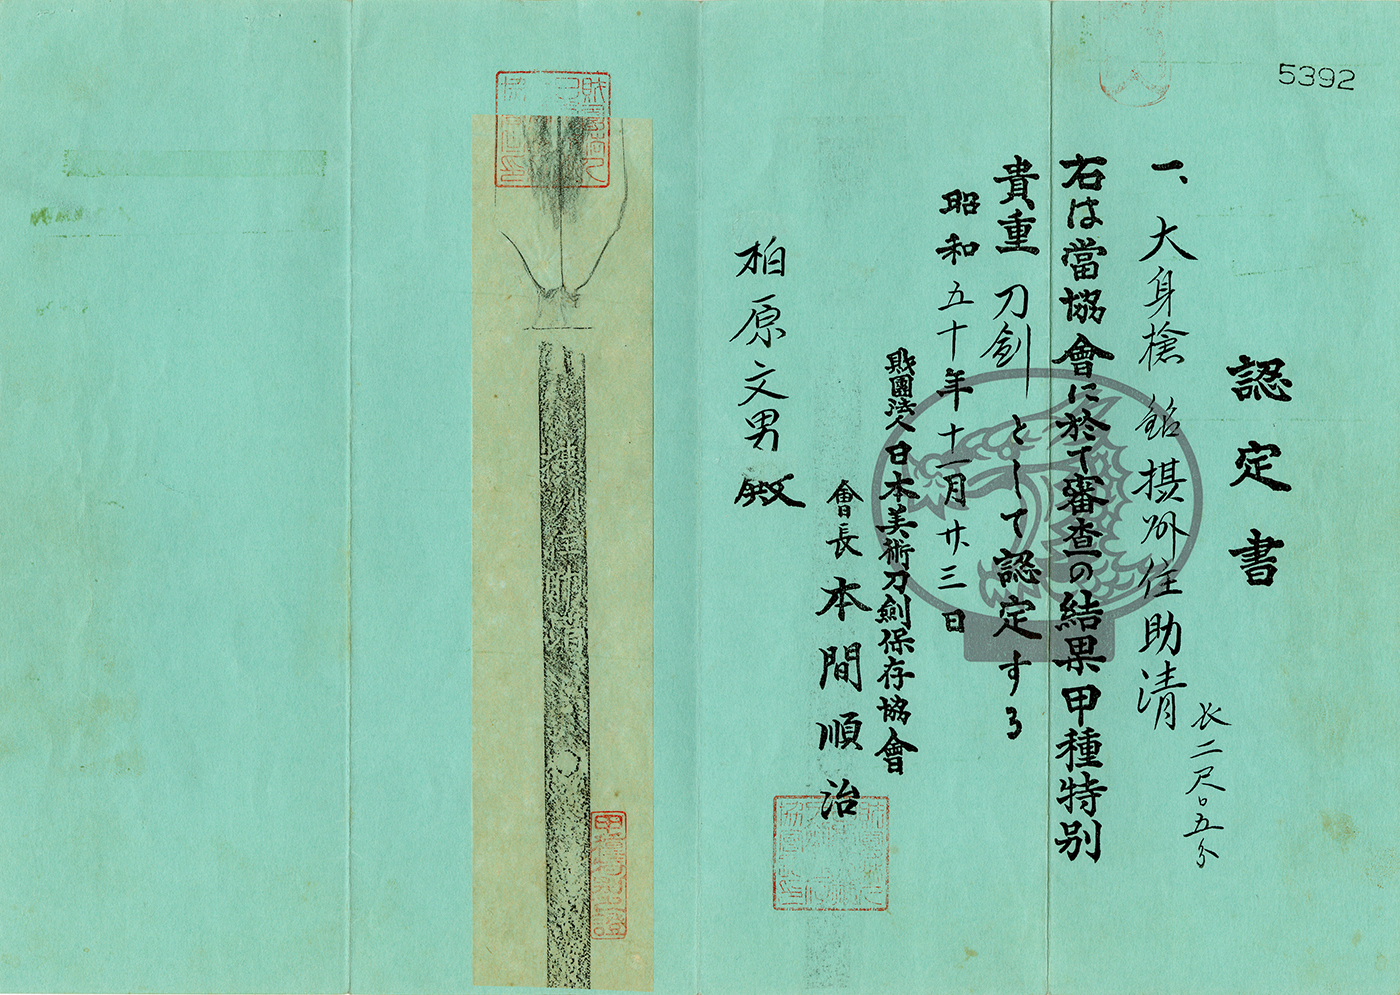 5392
認定書
一、大身槍 銘 摂州住助清
長二尺〇五分
右は當協會に於て審査の結果甲種特別
貴重刀劍として認定する
昭和五十年十一月廿三日
財團法人日本美術刀劍保存協會
會長 本間順治
柏原文男殿